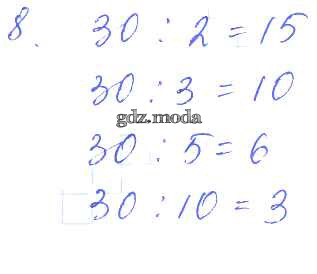 8. 30 : 2 = 15
30 : 3 = 10
gdz.moda
30 : 5 = 6
30 : 10 = 3